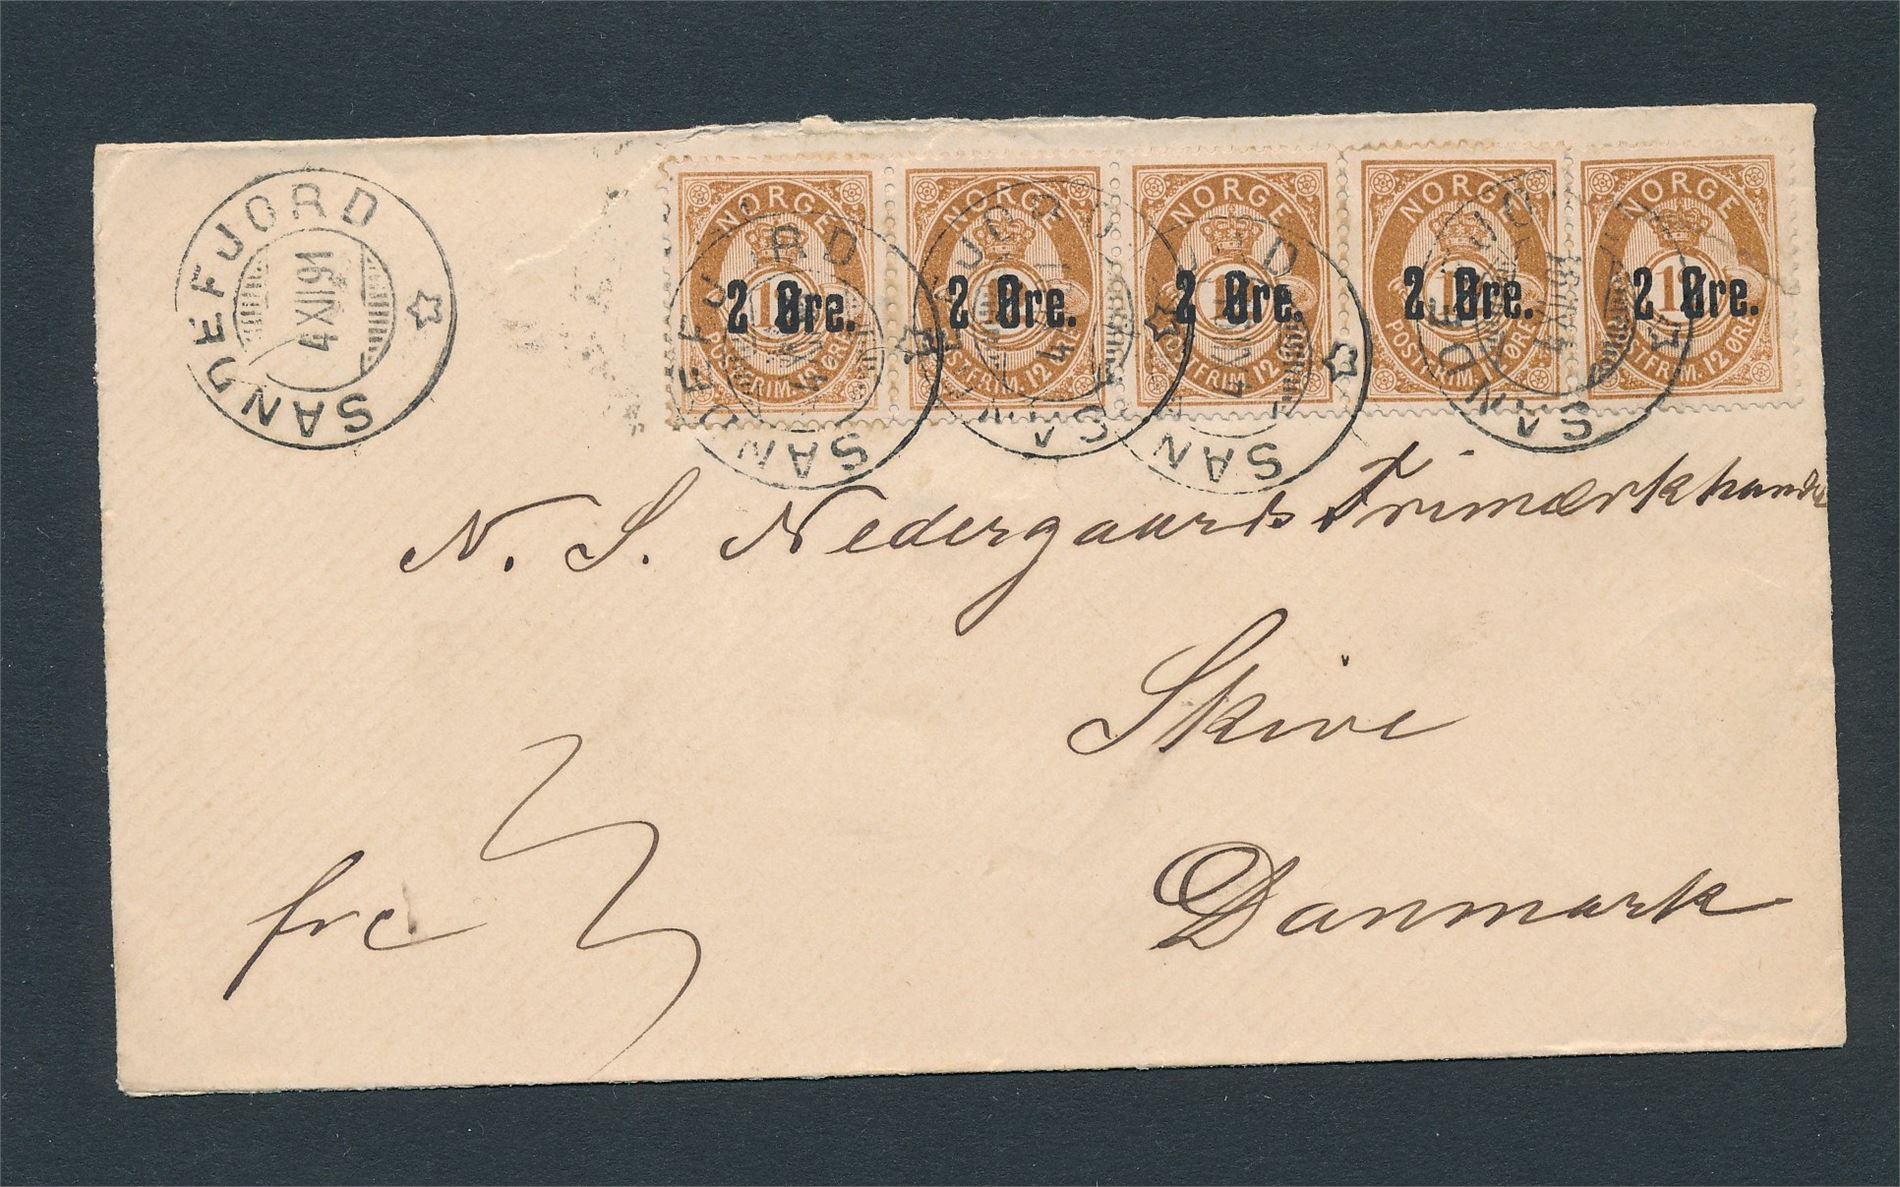 SANDEFJORD
4 XII 91
NORGE NORGE NORGE NORGE NORGE
2 Øre. 2 Øre. 2 Øre. 2 Øre. 2 Øre.
POSTFRIM. 12 ØRE POSTFRIM. 12 ØRE POSTFRIM. 12 ØRE POSTFRIM. 12 ØRE POSTFRIM. 12 ØRE
SANDEFJORD SANDEFJORD SANDEFJORD SANDEFJORD
N. S. Nedergaards Frimærkhandel
Skive
Danmark
frc